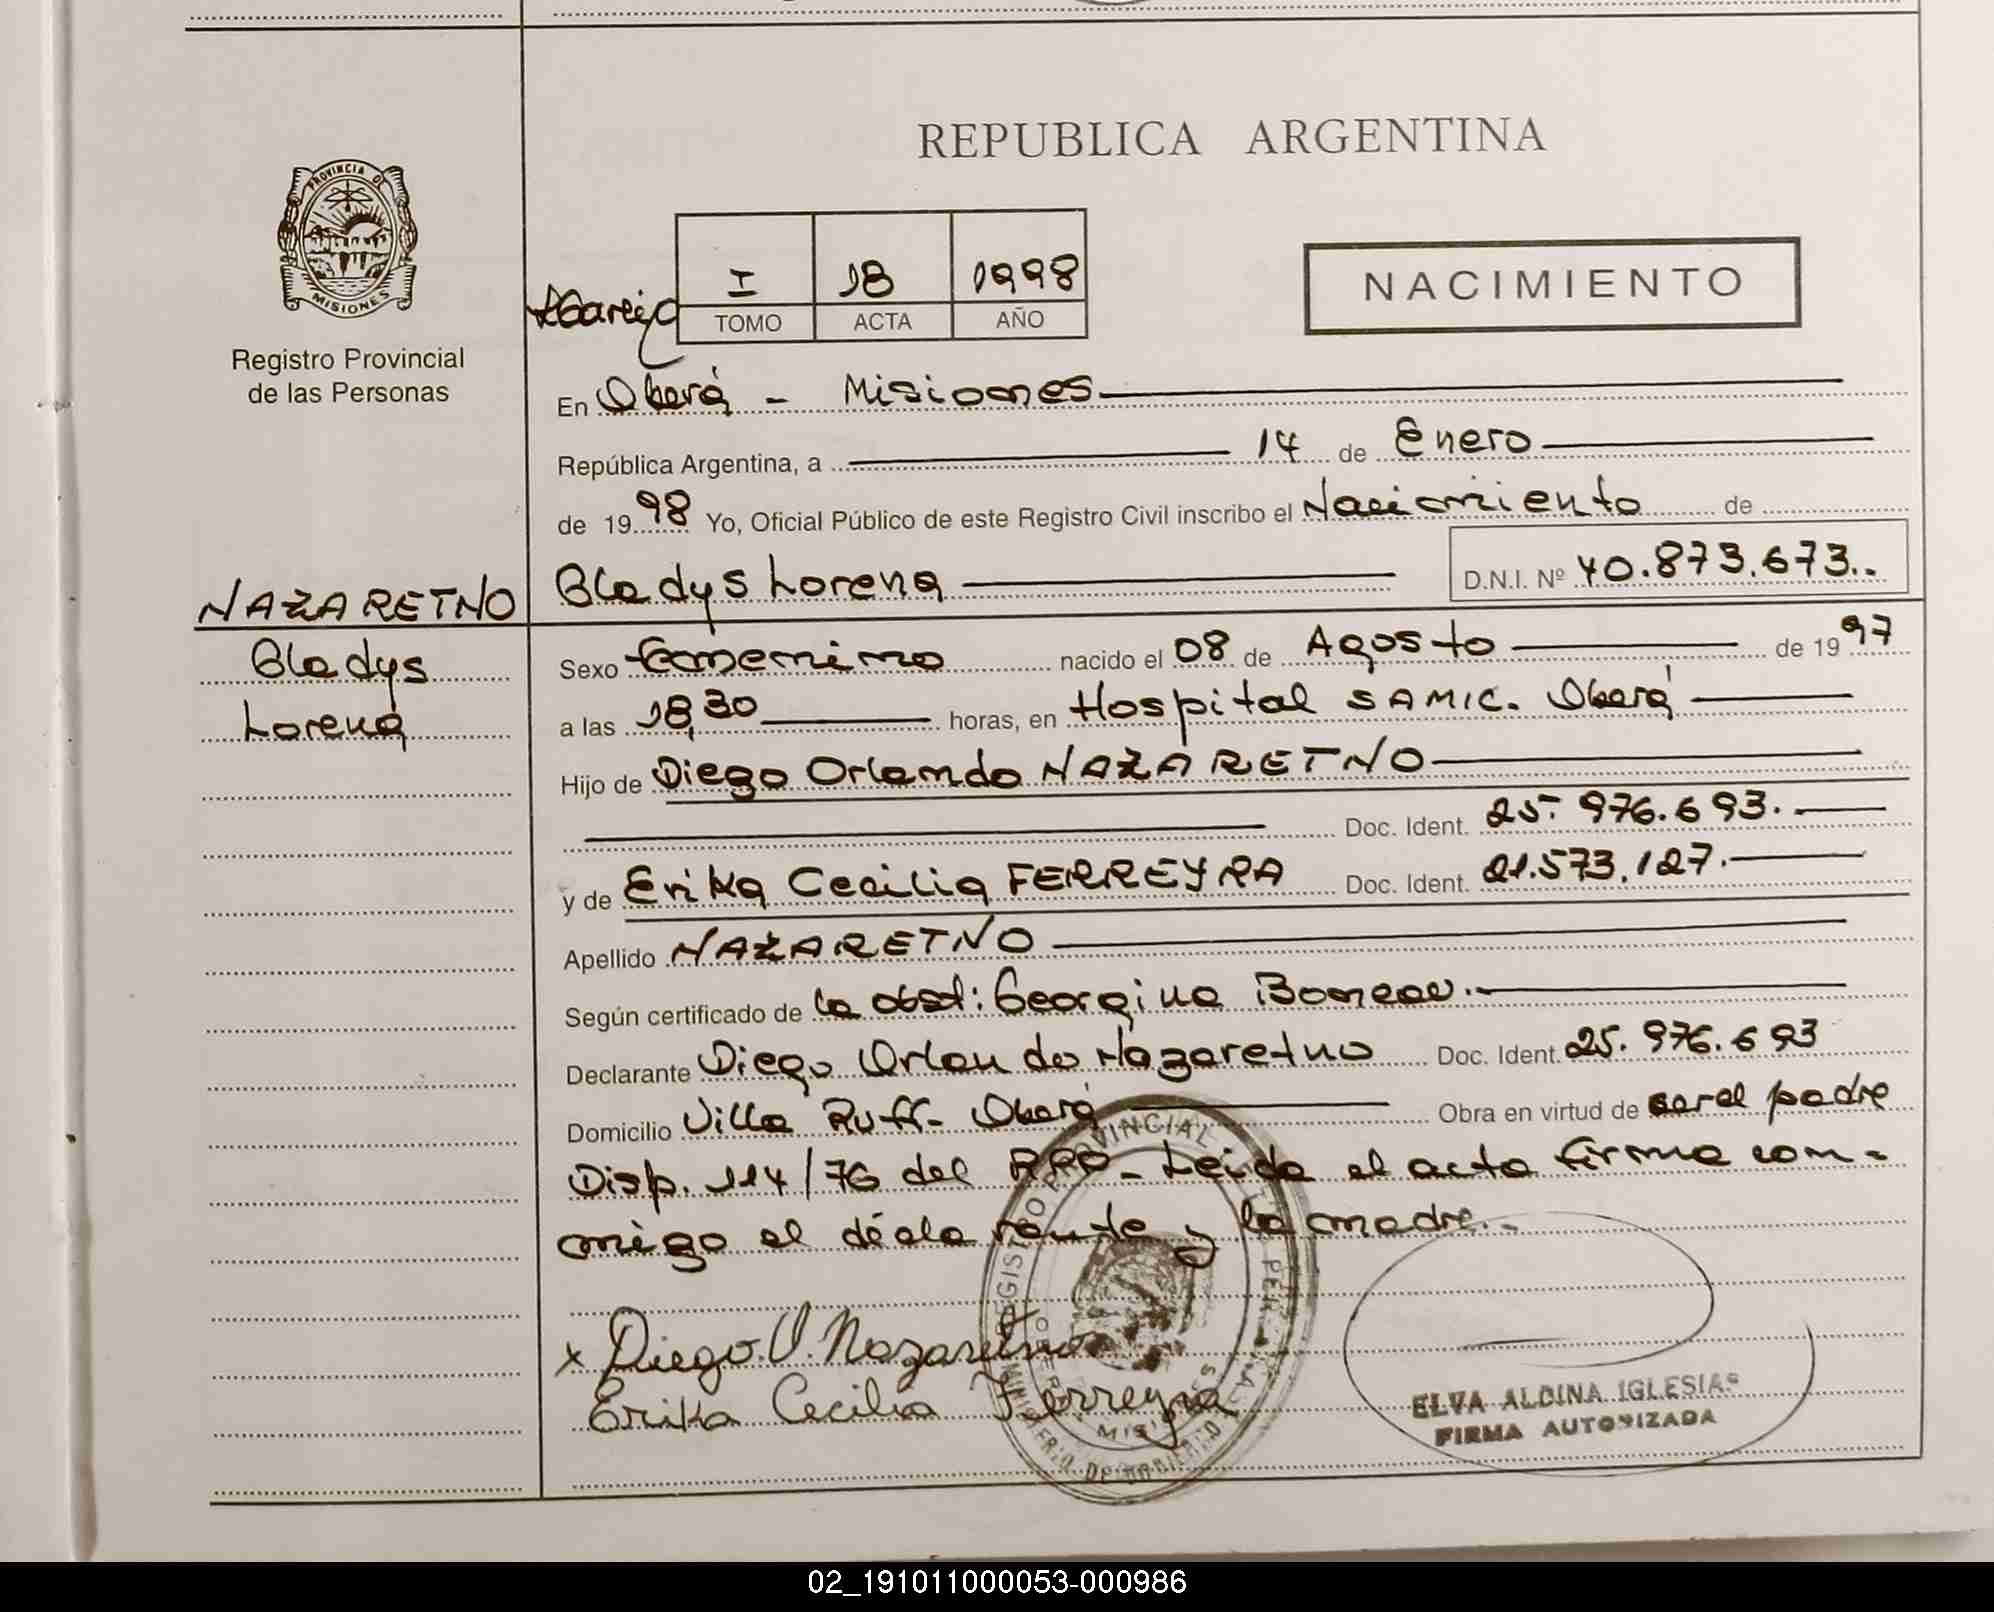 REPUBLICA ARGENTINA
PROVINCIA DE
MISIONES
Registro Provincial
de las Personas
I 18 1998
TOMO ACTA AÑO
NACIMIENTO
En Oberá - Misiones
República Argentina, a 14 de Enero
de 1998 Yo, Oficial Público de este Registro Civil inscribo el Nacimiento de
Gladys Lorena D.N.I. Nº 40.873.673..
NAZARETNO
Gladys
Lorena
Sexo femenino nacido el 08 de Agosto de 1997
a las 18,30 horas, en Hospital SAMIC. Oberá
Hijo de Diego Orlando NAZARETNO
Doc. Ident. 25.976.693.
y de Erika Cecilia FERREYRA Doc. Ident. 21.573.127.
Apellido NAZARETNO
Según certificado de la obst: Georgina
Declarante Diego Orlando Nazaretno Doc. Ident. 25.976.693
Domicilio Villa Ruff- Oberá Obra en virtud de ser el padre
Disp. 114/76 del RPP- Leida el acta firma con-
migo el declarante y la madre.-
x Diego.O.Nazaretno
Erika Cecilia Ferreyra
ELVA ALDINA IGLESIAS
FIRMA AUTORIZADA
02_191011000053-000986